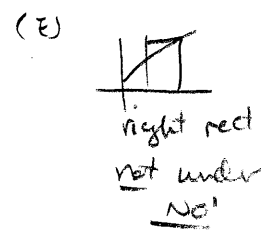 (E)
right rect
not under
No!